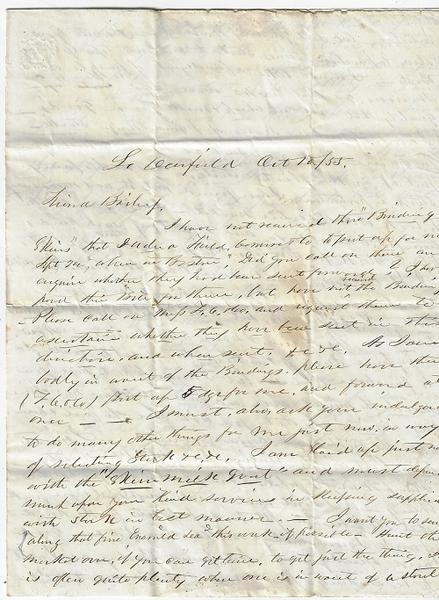 So Deerfield Oct 12/55.
Friend Bishop.
I have not received those "Binding
Skins" that I asked a Field, Converse & Co to put up for me
Sept. when in the store. Did you call on them and
enquire whether they had been sent forward? I have
paid this note for them, but have not the Bindings
Please call on Mess F. C. & Co, and request them to
ascertain whether they have been sent in this
direction, and when sent. &c &c. As I am
badly in want of the Bindings, please have them
(F. C. & Co) put up 5 dz for me, and forward at
once — I must, also, ask your indulgence
to do many other things for me just now, in way
of selecting Stock &c &c. I am laid up just now
with the "Skim milk Gout" and must depend
much upon your kind services in keeping supplied
with Stock in best manner. — I want you to send
along that fine Enameld this week if possible — Hunt the
market over, if you can get time, to get just the thing,
is often quite plenty when one is in want of a